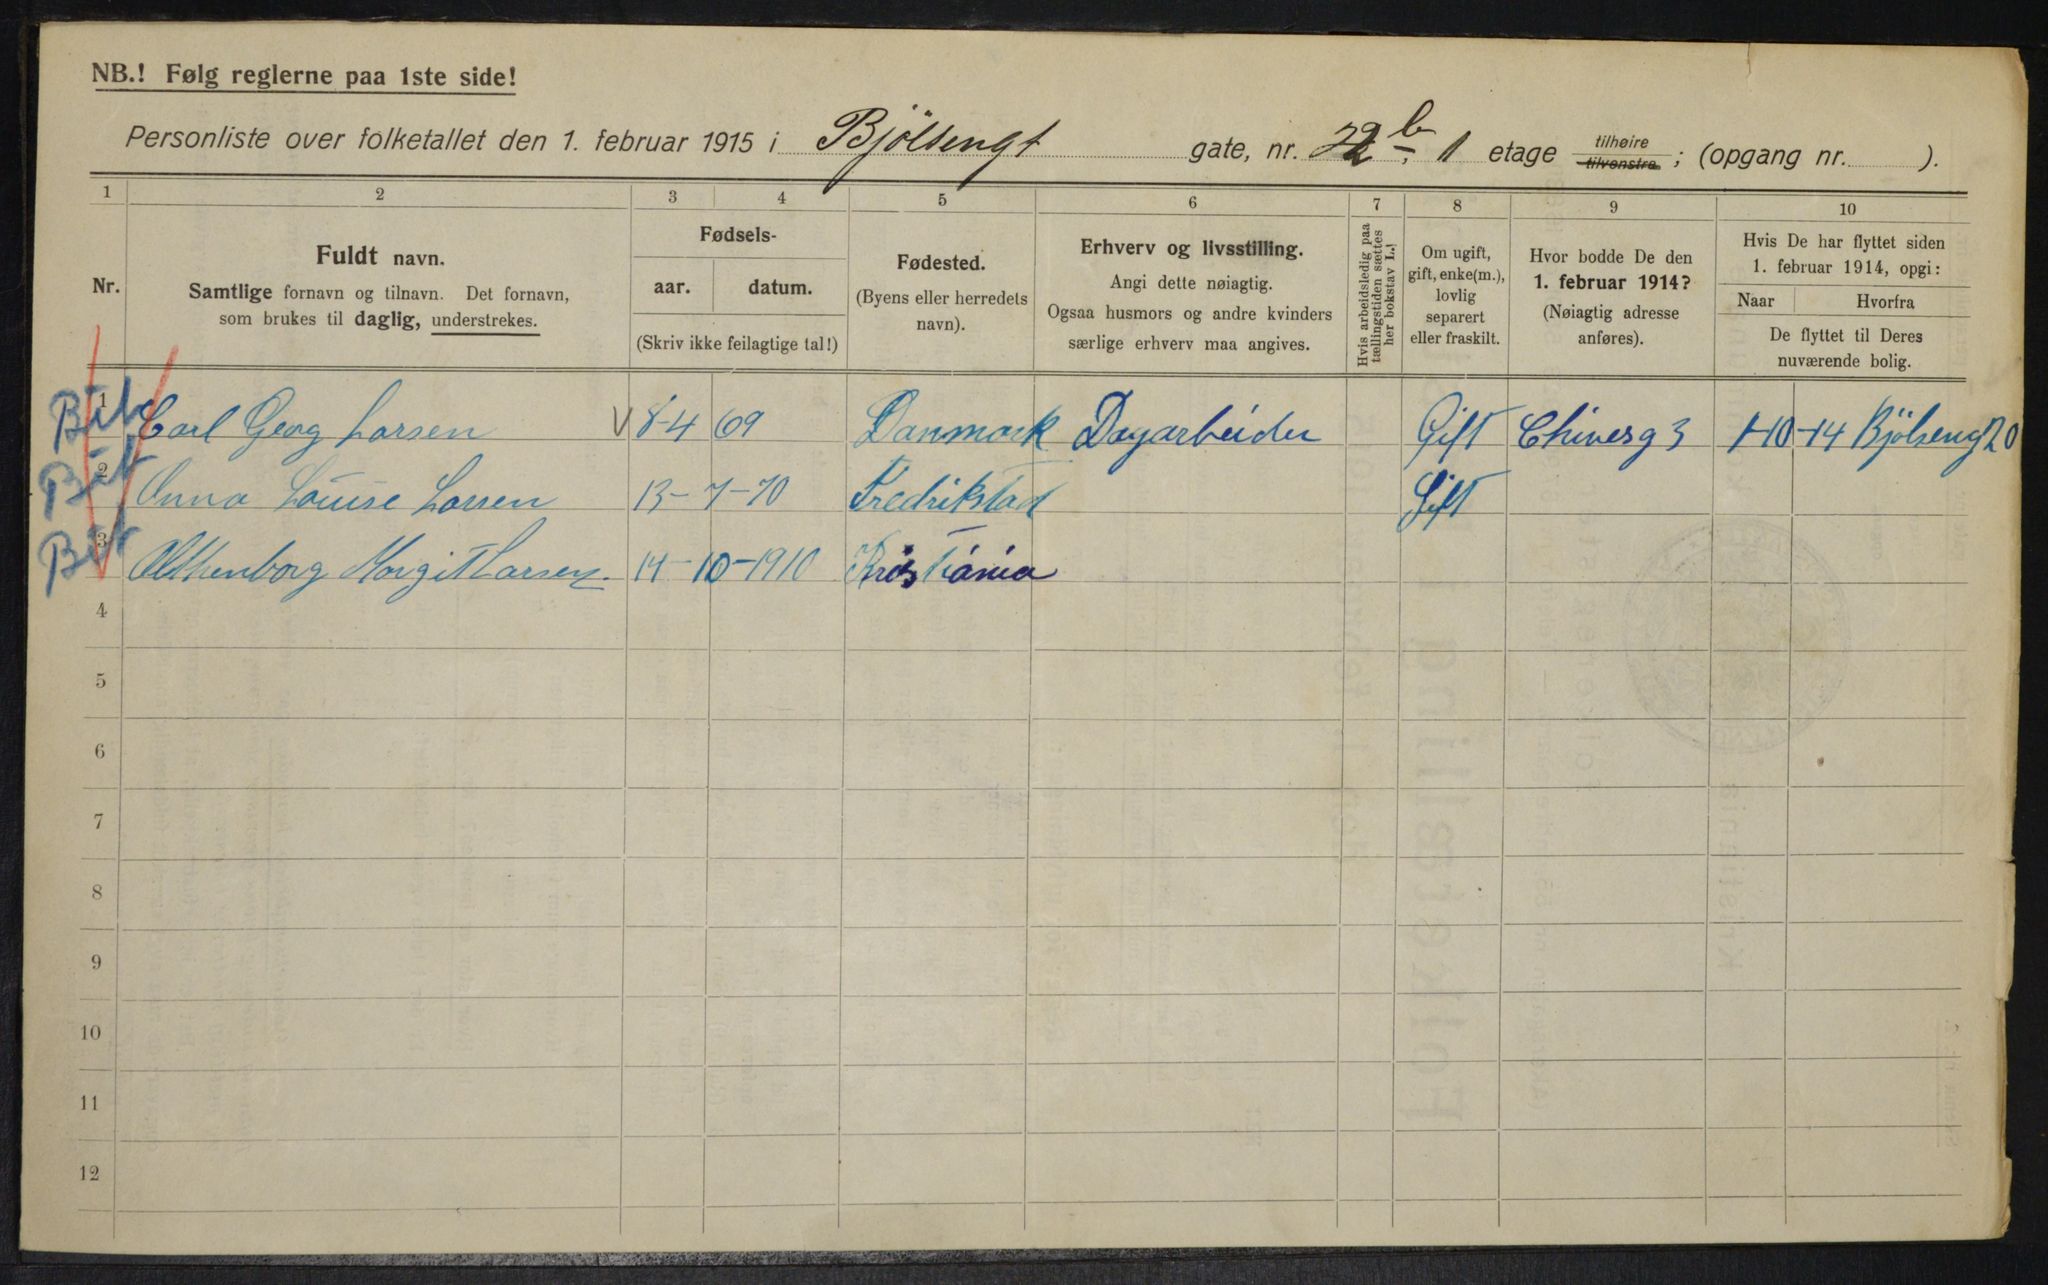 NB.! Følg reglerne paa 1ste side!
Personliste over folketallet den 1. februar 1915 i Bjölsengt gate, nr. 22 b, 1 etage tilhøire tilvenstre ; (opgang nr. ).
1 2 3 4 5 6 7 8 9 10
Nr.
Fuldt navn.
Samtlige fornavn og tilnavn. Det fornavn,
som brukes til daglig, understrekes.
Fødsels-
aar. datum.
(Skriv ikke feilagtige tal!)
Fødested.
(Byens eller herredets
navn).
Erhverv og livsstilling.
Angi dette nøiagtig.
Ogsaa husmors og andre kvinders
særlige erhverv maa angives.
Hvis arbeidsledig paa
tællingstiden sættes
her bokstav L.!
Om ugift,
gift, enke(m.),
lovlig
separert
eller fraskilt.
Hvor bodde De den
1. februar 1914?
(Nøiagtig adresse
anføres).
Hvis De har flyttet siden
1. februar 1914, opgi:
Naar Hvorfra
De flyttet til Deres
nuværende bolig.
1 Carl Georg Larsen 8-4 69 Danmark Dagarbeider Gift Chivesg 3 1-10-14 Bjölseng 20
2 Anna Louise Larsen 13-7-70 Fredrikstad Gift
3 Margit Larsen. 14-10-1910 Kristiania
4
5
6
7
8
9
10
11
12